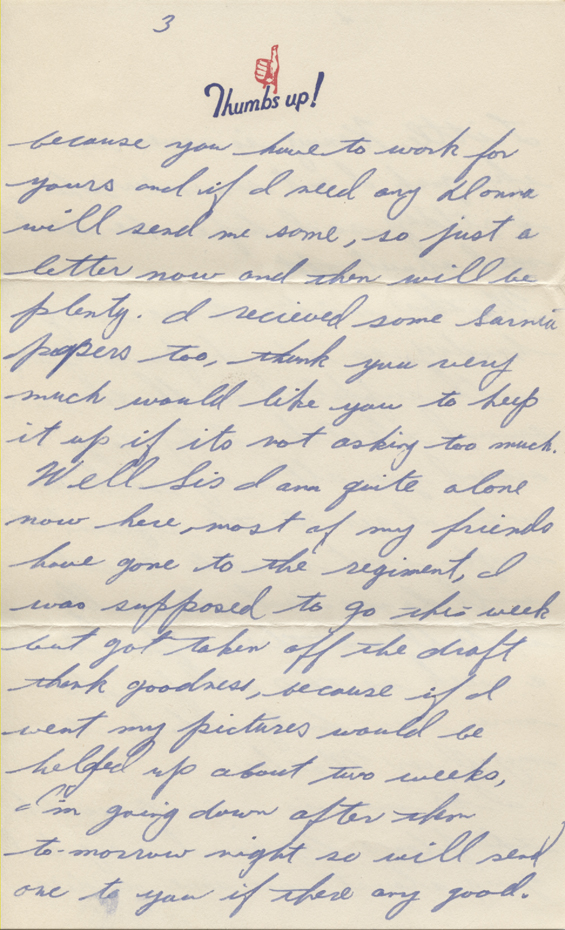 3
Thumbs up!
because you have to work for
yours and if I need any Donna
will send me some, so just a
letter now and then will be
plenty. I recieved some Sarnia
papers too, thank you very
much would like you to keep
it up if its not asking too much.
Well Sis I am quite alone
now here, most of my friends
have gone to the regiment, I
was supposed to go this week
but got taken off the draft
thank goodness, because if I
went my pictures would be
helded up about two weeks,
I'm going down after them
to-morrow night so will send
one to you if there any good.